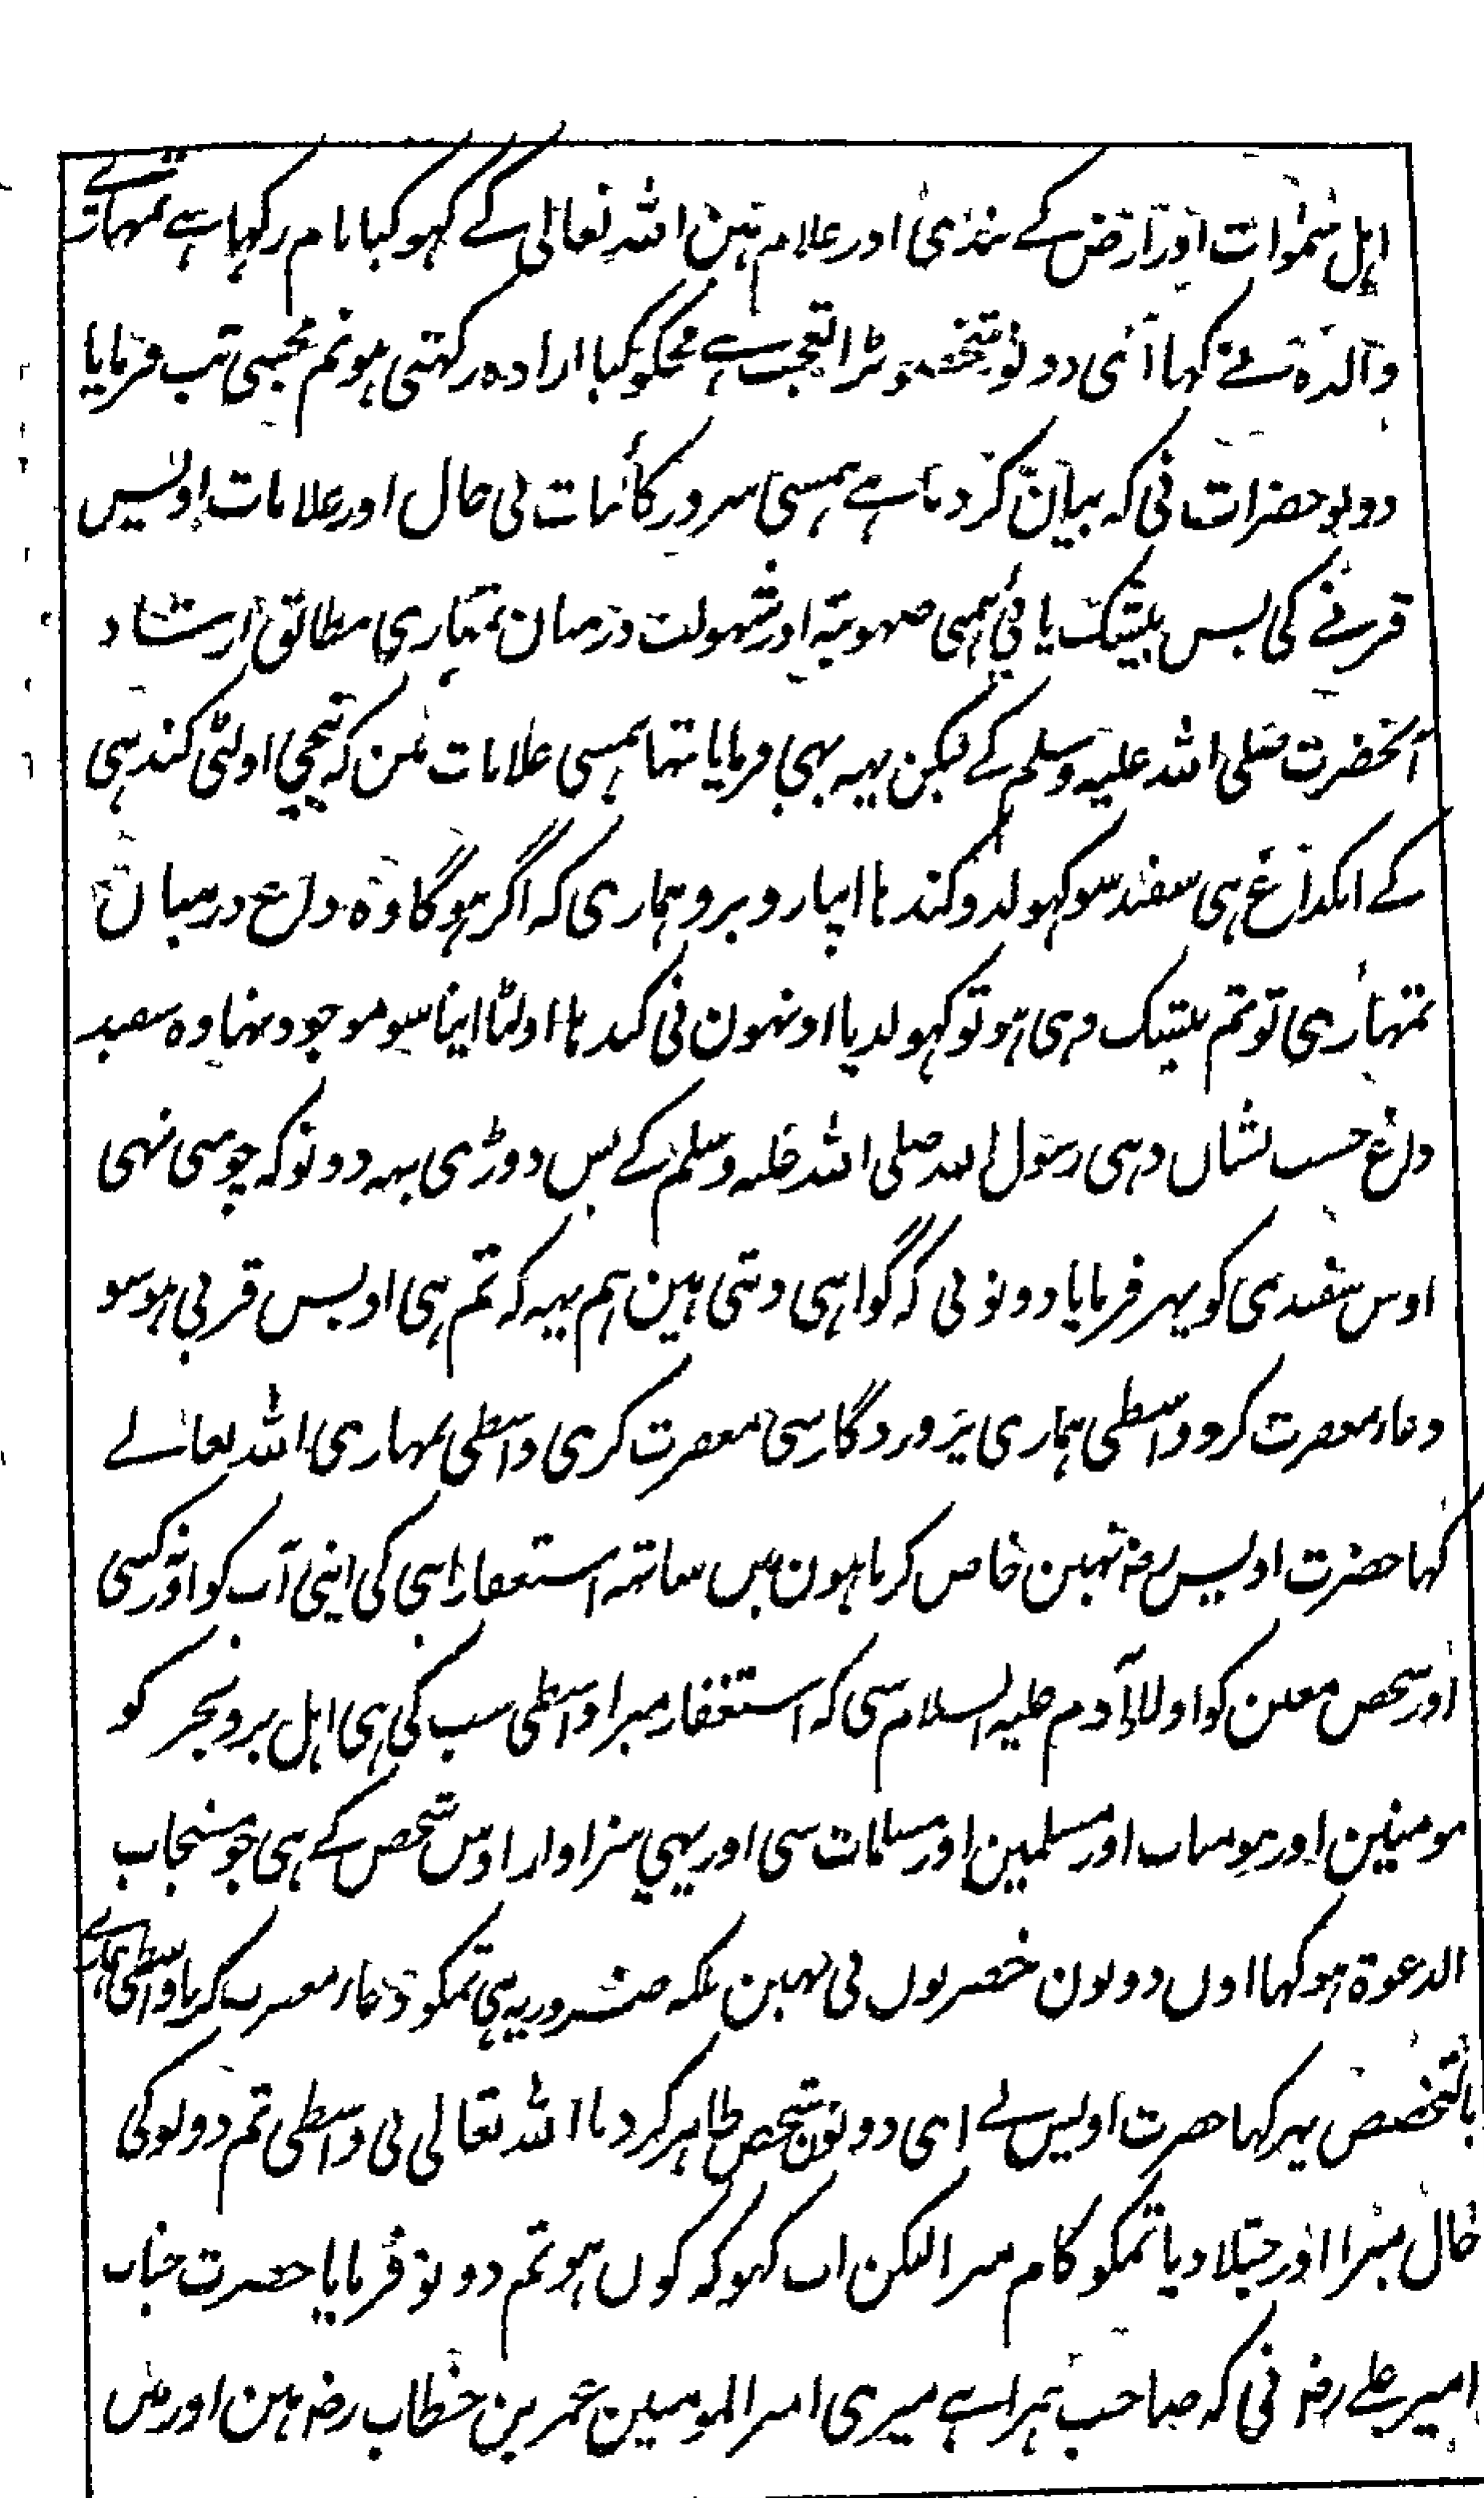 اہل سموات اور ارض کے بندی اور غلام ہین اللہ تعالی کے کہو کیا نام رکہا ہے تمہارے
والدہ نے کہا ای دونو شخصو بڑا تعجب ہے مجکو کیا ارادہ رکہتی ہو تم مجہسی تب فرمایا
دونو حضرات نی کہ بیان کر دیا ہے ہمسی سرور کائنات نی حال اور علامات اویس
قرنے کی بس بیشک پائی ہمنی صہوبتہ اور شہولت درمیان تمہاری مطابق ارشاد
آنحضرت صلی اللہ علیہ وسلم کے لیکن یہہ بہی فرمایا تہا ہمسی علامات مین کہ نیچی اولٹی کندہی
کے ایکداغ ہی سفید سو کہولدو کندہا اپنا روبرو ہماری کہ اگر ہوگا وہ داغ درمیان
تمہاری تو تم بیشک وہی ہو تو کہولدیا اونہون نی کندہا اولٹا اپنا سو موجود تہا وہ سفید
داغ حسب نشان دہی رسول اللہ صلی اللہ علیہ وسلم کے بس دوڑی یہہ دونو کہ چومی نہی
اوس سفیدی کو پہر فرمایا دونو نی کہ گواہی دیتی ہین ہم یہہ کہ تم ہی اویس قرنی ہو سو
دعاء مغفرت کرو واسطی ہماری پروردگار سی مغفرت کری واسطی تمہاری اللہ تعالے
کہا حضرت اویس رضہ نہین خاص کرتا ہون مین ساتہہ استغفار اپنی کی اپنی آپ کو اور کسی
اور شخص معین کو اولاد آدم علیہ السلام سی کہ استغفار میرا واسطی سب کی ہی اہل بر و بحر کو
مومنین اور مومنات اور مسلمین اور مسلمات سی اور یہی سزاوار اوس شخص کے ہی جو مستجاب
الدعوۃ ہو کہا اون دونون حضرتون نی نہین بلکہ ضرور یہ ہی تمکو دعاء مغفرت کرنا واسطی ہمارے
بالتخصیص پہر کہا حضرت اویس نے ای دونون شخص ظاہر کر دیا اللہ تعالی نی واسطی تم دونو کی
حال میرا اور جتلا دیا تمکو کام میرا لیکن اب کہو کہ کون ہو تم دونو فرمایا حضرت جناب
امیر علے رضہ نی کہ صاحب ہمراہے میری امیر المومنین عمر بن خطاب رضہ ہین اور مین